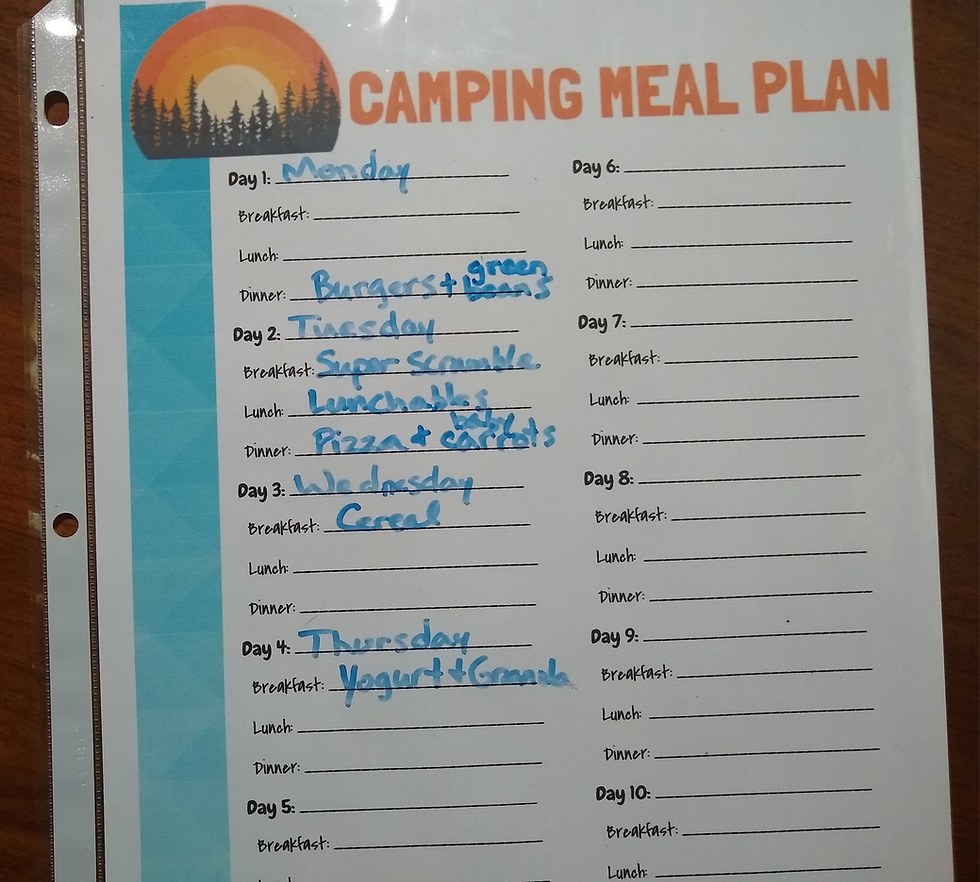 CAMPING MEAL PLAN
Day 1: Monday
Breakfast:
Lunch:
Dinner: Burgers + green beans
Day 2: Tuesday
Breakfast: Super Scramble
Lunch: Lunchables
Dinner: Pizza + baby carrots
Day 3: Wednesday
Breakfast: Cereal
Lunch:
Dinner:
Day 4: Thursday
Breakfast: Yogurt + Granola
Lunch:
Dinner:
Day 5:
Breakfast:
Day 6:
Breakfast:
Lunch:
Dinner:
Day 7:
Breakfast:
Lunch:
Dinner:
Day 8:
Breakfast:
Lunch:
Dinner:
Day 9:
Breakfast:
Lunch:
Dinner:
Day 10:
Breakfast:
Lunch: